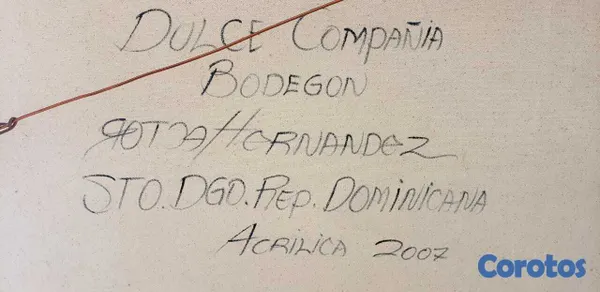 DULCE COMPAÑIA
BODEGON
ROTCA HERNANDEZ
STO. DGO. REP. DOMINICANA
ACRILICA 2007
Corotos